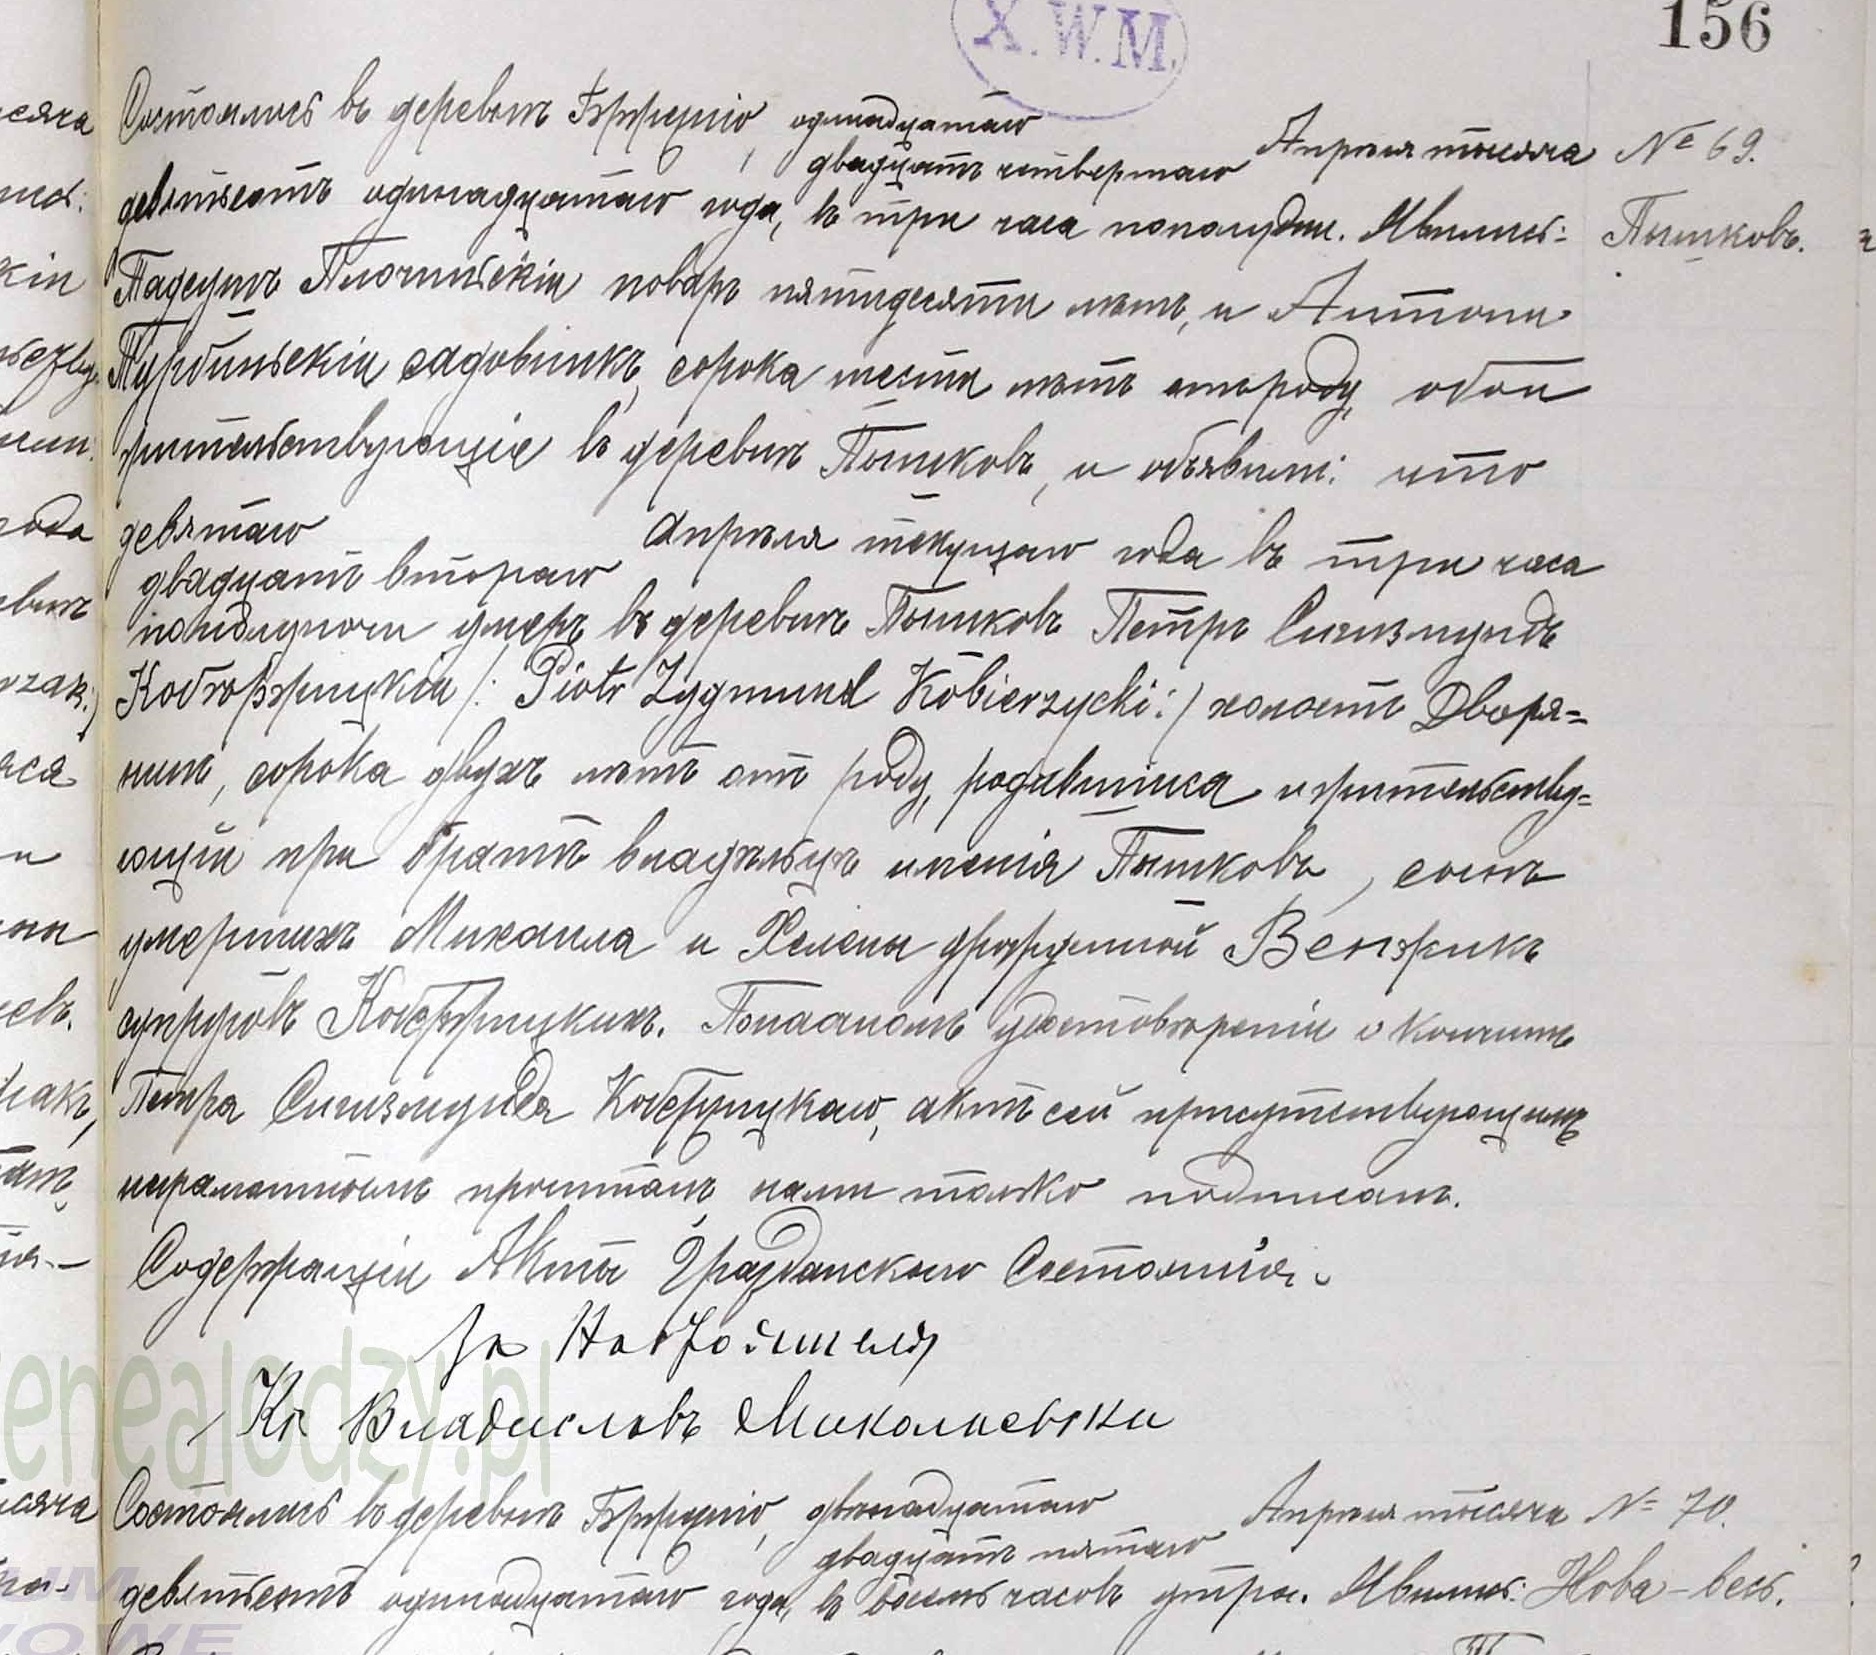 X.W.M.
156
Состоялось въ деревнѣ Бржезно, одинадцатаго
двадцать четвертаго Апрѣля тысяча № 69.
девятьсотъ одинадцатаго года, въ три часа пополудни. Явились: Пышковъ.
Тадеушъ поваръ пятидесяти лѣтъ, и Антони
садовникъ, сорока шести лѣтъ отъ роду, оба
жительствующіе въ деревнѣ Пышковъ, и объявили: что
девятаго
двадцать втораго Апрѣля текущаго года въ три часа
пополуночи умеръ въ деревнѣ Пышковъ Петръ Сигизмундъ
Кобержицкій /: Piotr Zygmund Kobierzycki :/ холостъ Дворя=
нинъ, сорока двухъ лѣтъ отъ роду, родившійся и жительству=
ющій при братѣ владѣльцѣ имѣнія Пышковъ, сынъ
умершихъ Михаила и Хелены урожденной Венжикъ
супруговъ Кобержицкихъ. По удостовѣреніи о кончинѣ
Петра Сигизмунда Кобержицкаго, актъ сей присутствующимъ
неграмотнымъ прочитанъ, нами только подписанъ.
Содержащій Акты Гражданскаго Состоянія
За Настоятеля
Кс Владиславъ Миколаевски
genealodzy.pl
Состоялось въ деревнѣ Бржезно, двѣнадцатаго
двадцать пятаго Апрѣля тысяча № 70.
девятьсотъ одинадцатаго года, въ восемь часовъ утра. Явились: Нова-весь.